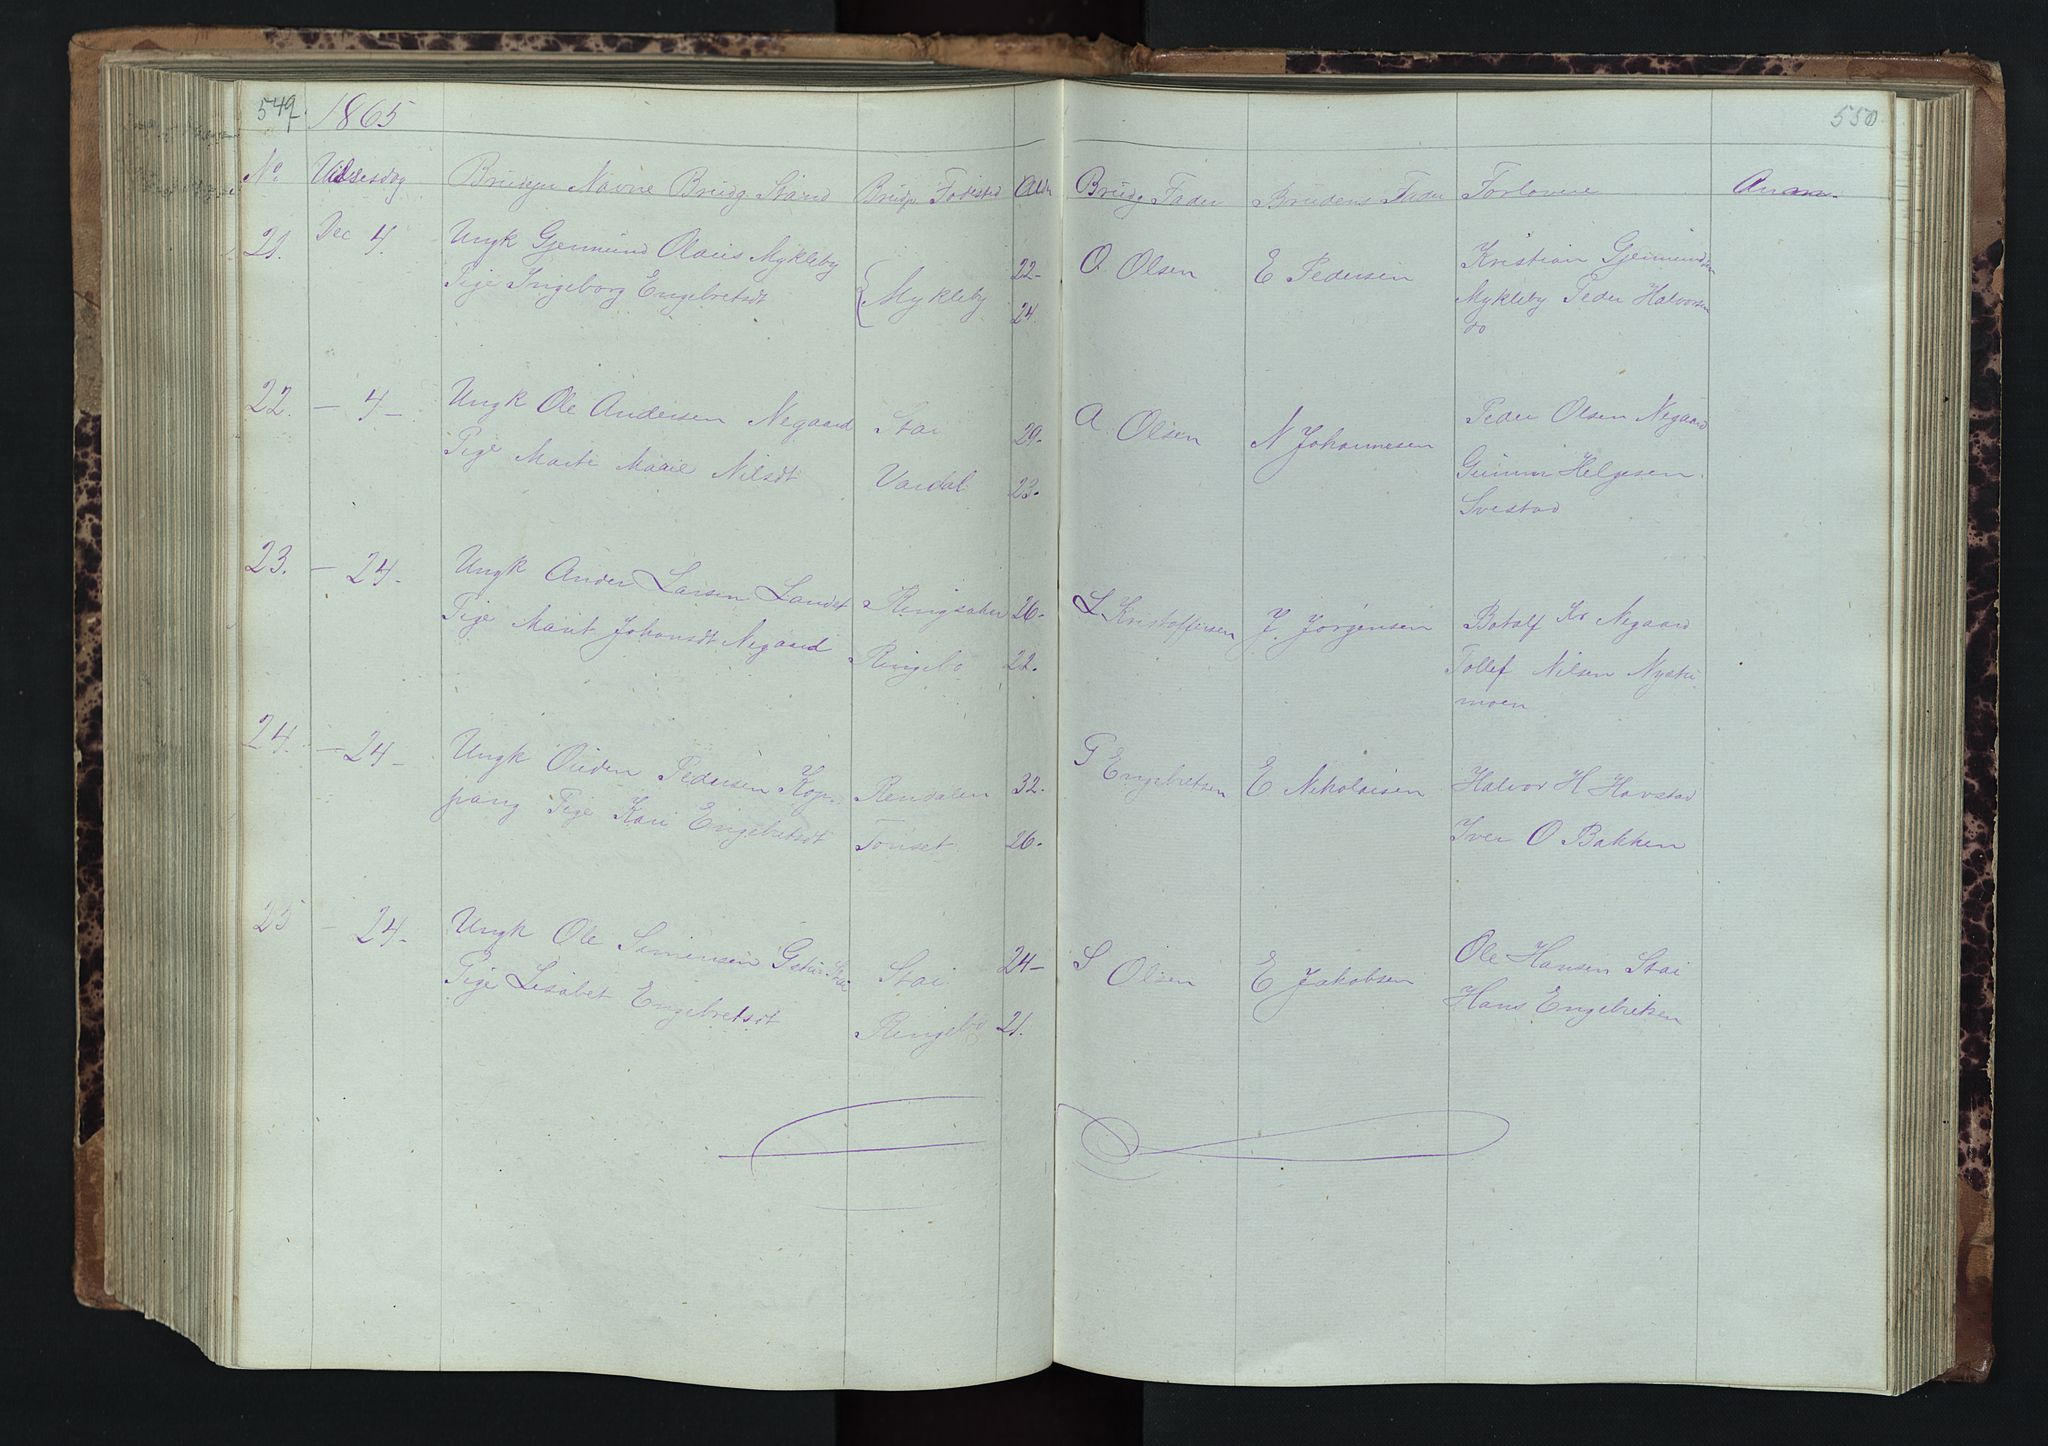 549. 1865
550
No. Vielsesdag Brudep Navne Brudg Stand Brudp Fødested Alder Brudg Fader Brudens Fader Forlovere Anm.
21. Dec 4. Ungk Gjermund Olsen Mykleby
Pige Ingeborg Engebretsdt
Mykleby
22-
24
O. Olsen
E Pedersen
Kristian Gjermundsen
Mykleby Peder Halvorsen
do
22. — 4 — Ungk Ole Andersen Negaard
Pige Marte Marie Nilsdt
Stai
Vardal
29.
23.
A Olsen
N Johannesen
Peder Olsen Negaard
Gunner Helgesen
Svestad
23. — 24. Ungk Ander Larsen Landet
Pige Marit Johansdt Negaard
Ringsaker
Ringebo
26.
22.
L Kristoffersen
J. Jørgensen
Botolf Kr Negaard
Tollef Nilsen Nystu
moen
24. — 24 — Ungk Ouden Pedersen Kop-
pang Pige Kari Engebretsdt
Rendalen
Tønset
32.
26.
P Engebretsen
E Nikolaisen
Halvor H Havstad
Iver O Bakken
25 — 24. Ungk Ole Simensen Stai
Pige Lisabet Engebretsdt
Stai
Ringebo
24-
21.
S Olsen
E Jakobsen
Ole Hansen Stai
Hans Engebretsen